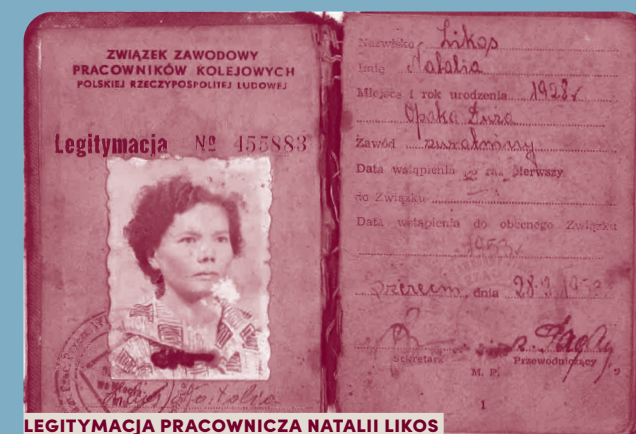 ZWIĄZEK ZAWODOWY
PRACOWNIKÓW KOLEJOWYCH
POLSKIEJ RZECZYPOSPOLITEJ LUDOWEJ
Legitymacja Nº 455883
Natalia
Nazwisko Likos
Imię Natalia
Miejsce i rok urodzenia 1928 r
Opoka Duża
Zawód
Data wstąpienia po raz pierwszy
do Związku
Data wstąpienia do obecnego Związku
1953 r.
Szczecin, dnia 28.3.1953
Sekretarz Przewodniczący
M. P.
1
LEGITYMACJA PRACOWNICZA NATALII LIKOS